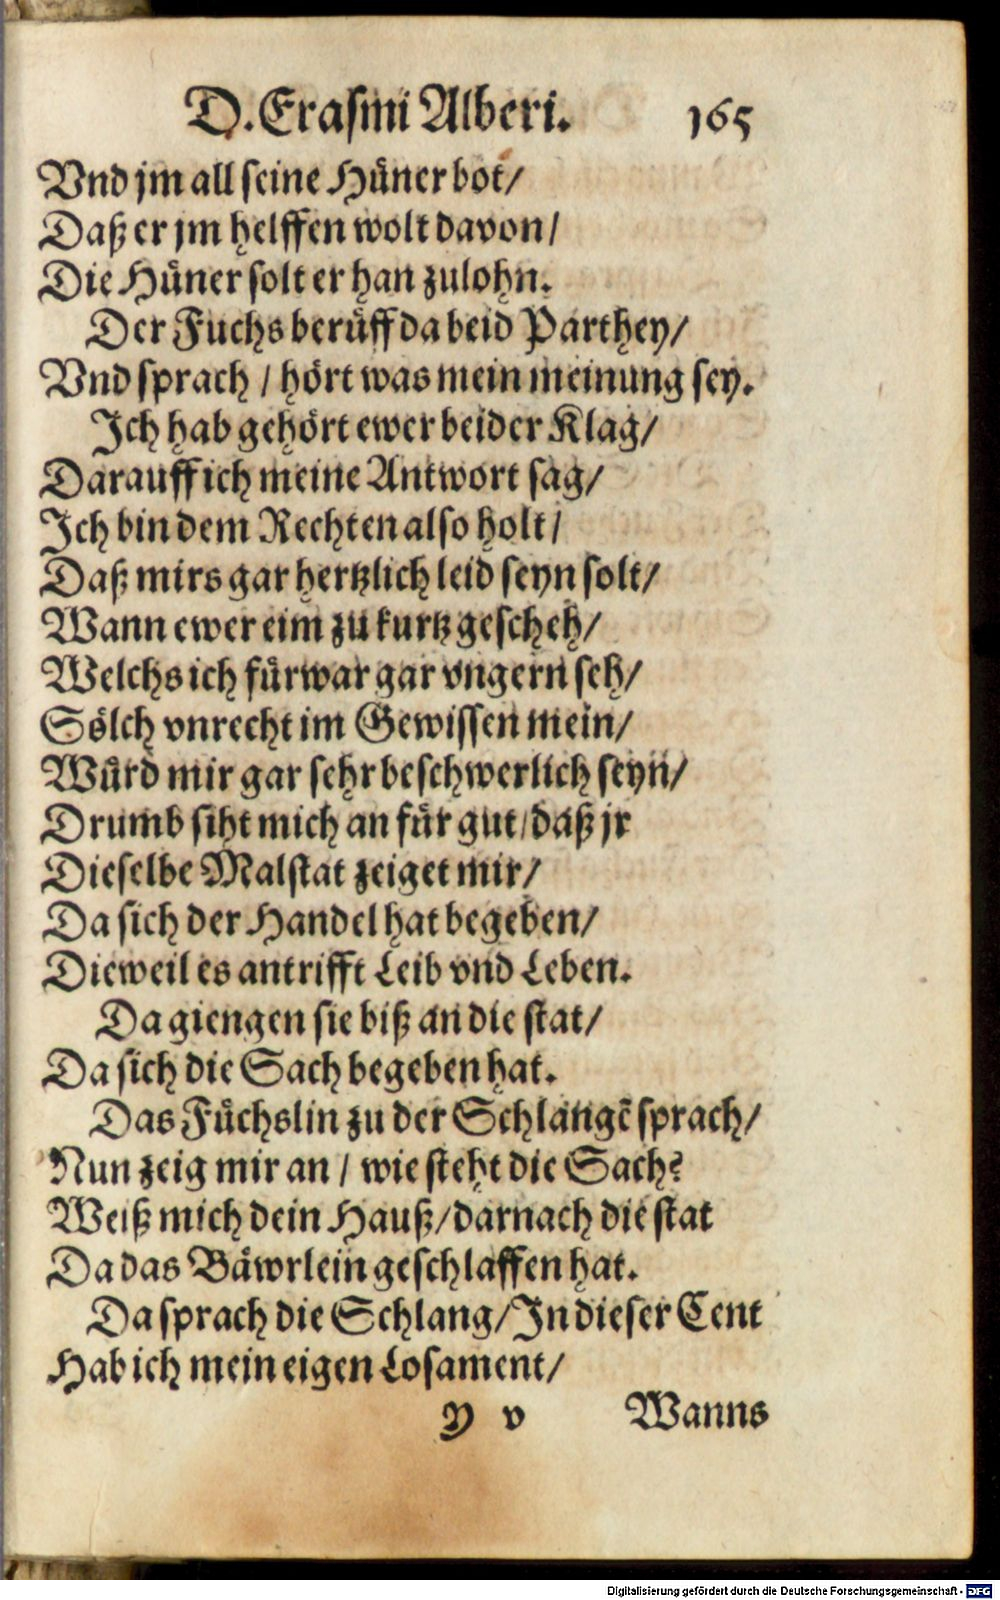 D. Erasmi Alberi. 165
Vnd jm all seine Hüner bot/
Daß er jm helffen wolt davon/
Die Hüner solt er han zulohn.
Der Fuchs berüff da beid Parthey/
Vnd sprach / hört was mein meinung sey.
Ich hab gehört ewer beider Klag/
Darauff ich meine Antwort sag/
Ich bin dem Rechten also holt/
Daß mirs gar hertzlich leid seyn solt/
Wann ewer eim zu kurtz gescheh/
Welchs ich fürwar gar vngern seh/
Sölch vnrecht im Gewissen mein/
Würd mir gar sehr beschwerlich seyn/
Drumb siht mich an für gut/daß jr
Dieselbe Malstat zeiget mir/
Da sich der Handel hat begeben/
Dieweil es antrifft Leib vnd Leben.
Da giengen sie biß an die stat/
Da sich die Sach begeben hat.
Das Füchslin zu der Schlangẽ sprach/
Nun zeig mir an / wie steht die Sach?
Weiß mich dein Hauß/darnach die stat
Da das Bäwrlein geschlaffen hat.
Da sprach die Schlang/In dieser Cent
Hab ich mein eigen Losament/
Y v Wanns
Digitalisierung gefördert durch die Deutsche Forschungsgemeinschaft - DFG